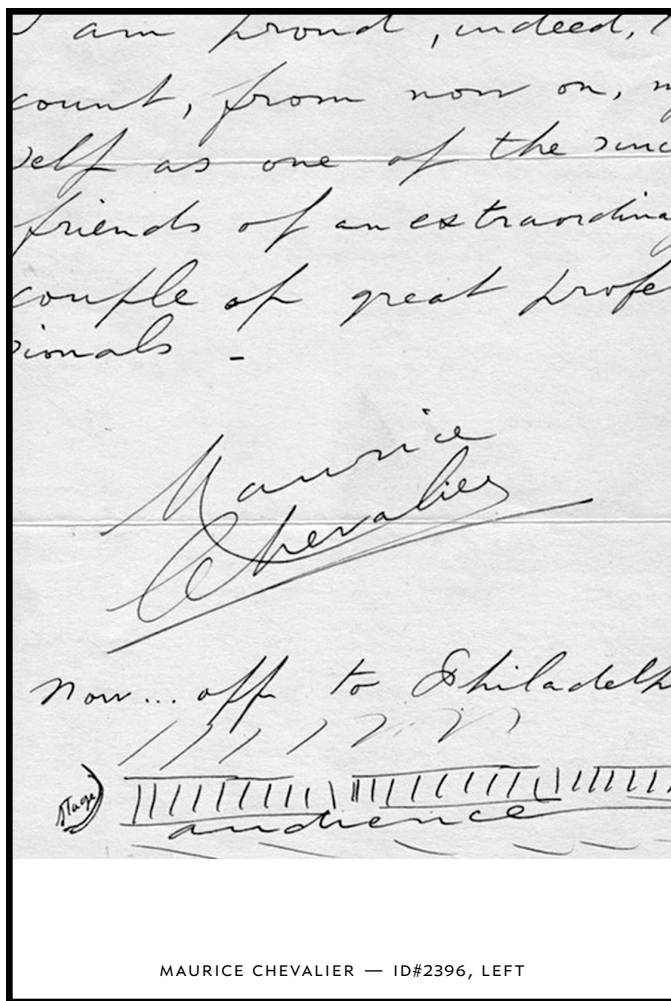 I am proud, indeed,
count, from now on, my
self as one of the sinc
friends of an extraordina
couple of great profes
sionals -
Maurice
Chevalier
Now... off to Philadelph
Stage
audience
MAURICE CHEVALIER — ID#2396, LEFT